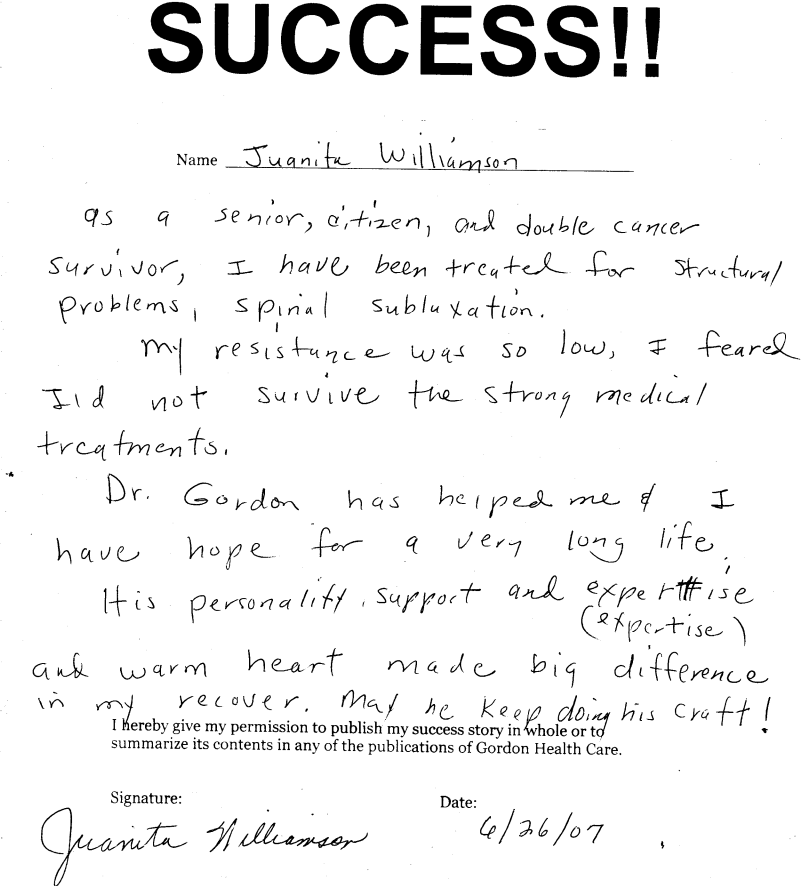 SUCCESS!!
Name Juanita Williamson
as a senior, citizen, and double cancer
survivor, I have been treated for structural
problems, spinal subluxation.
My resistance was so low, I feared
I'd not survive the strong medical
treatments.
Dr. Gordon has helped me & I
have hope for a very long life.
His personality, support and expertise
(expertise)
and warm heart made big difference
in my recover. May he keep doing his craft!
I hereby give my permission to publish my success story in whole or to
summarize its contents in any of the publications of Gordon Health Care.
Signature: Date:
Juanita Williamson 6/26/07